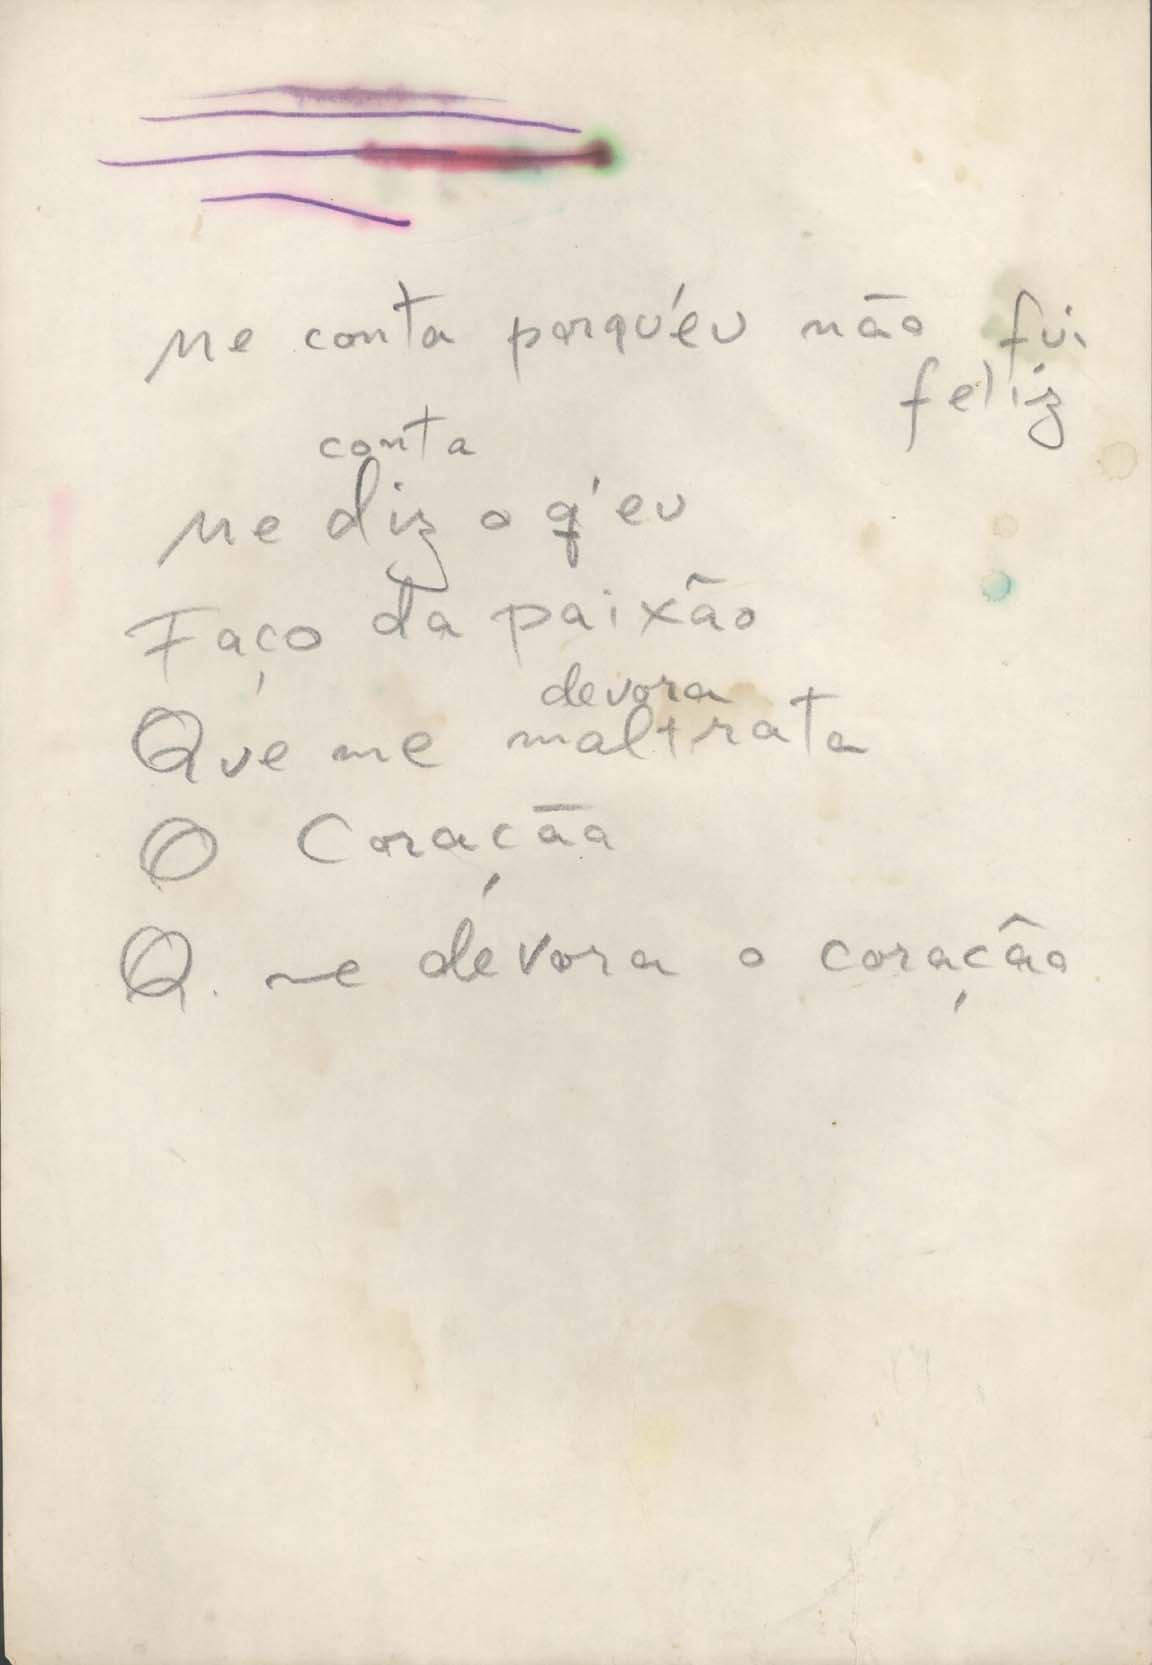 Me conta porqu'eu não fui
feliz
conta
Me diz o q'eu
Faço da paixão
devora
Que me maltrata
O Coração
Q. me devora o coração